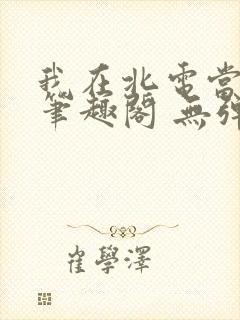 我在北電當
筆趣閣 無彈
崔學澤